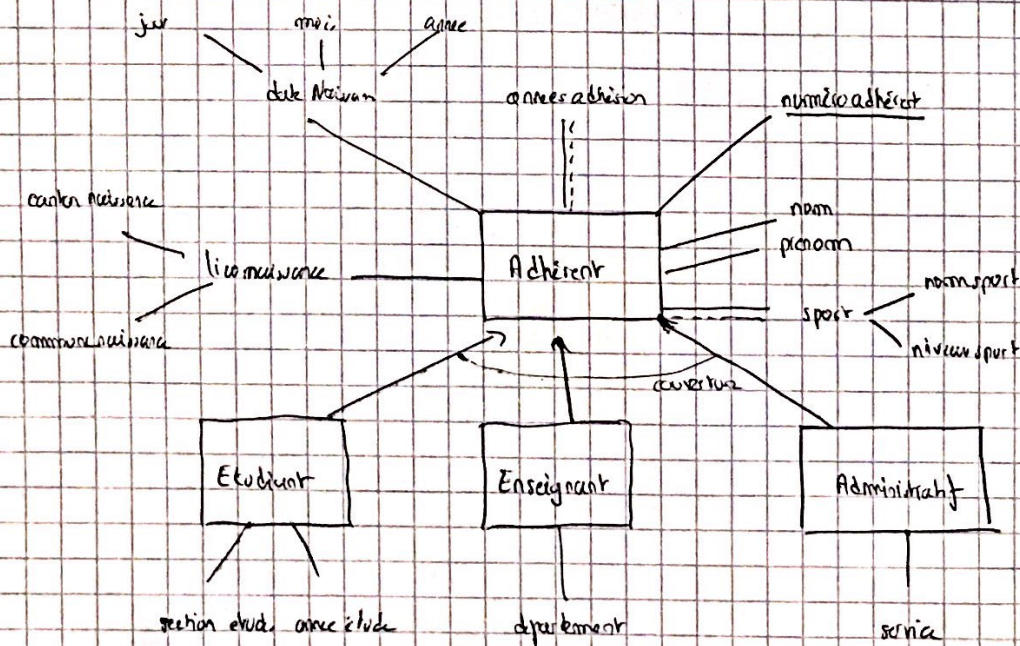 jour mois annee
date Naissan annees adhésion numéro adhérent
canton naissance nom
prenom
lieu naissance Adhérent nom sport
sport
commune naissance niveau sport
couverture
Etudiant Enseignant Administratif
section etud. annee étude département service